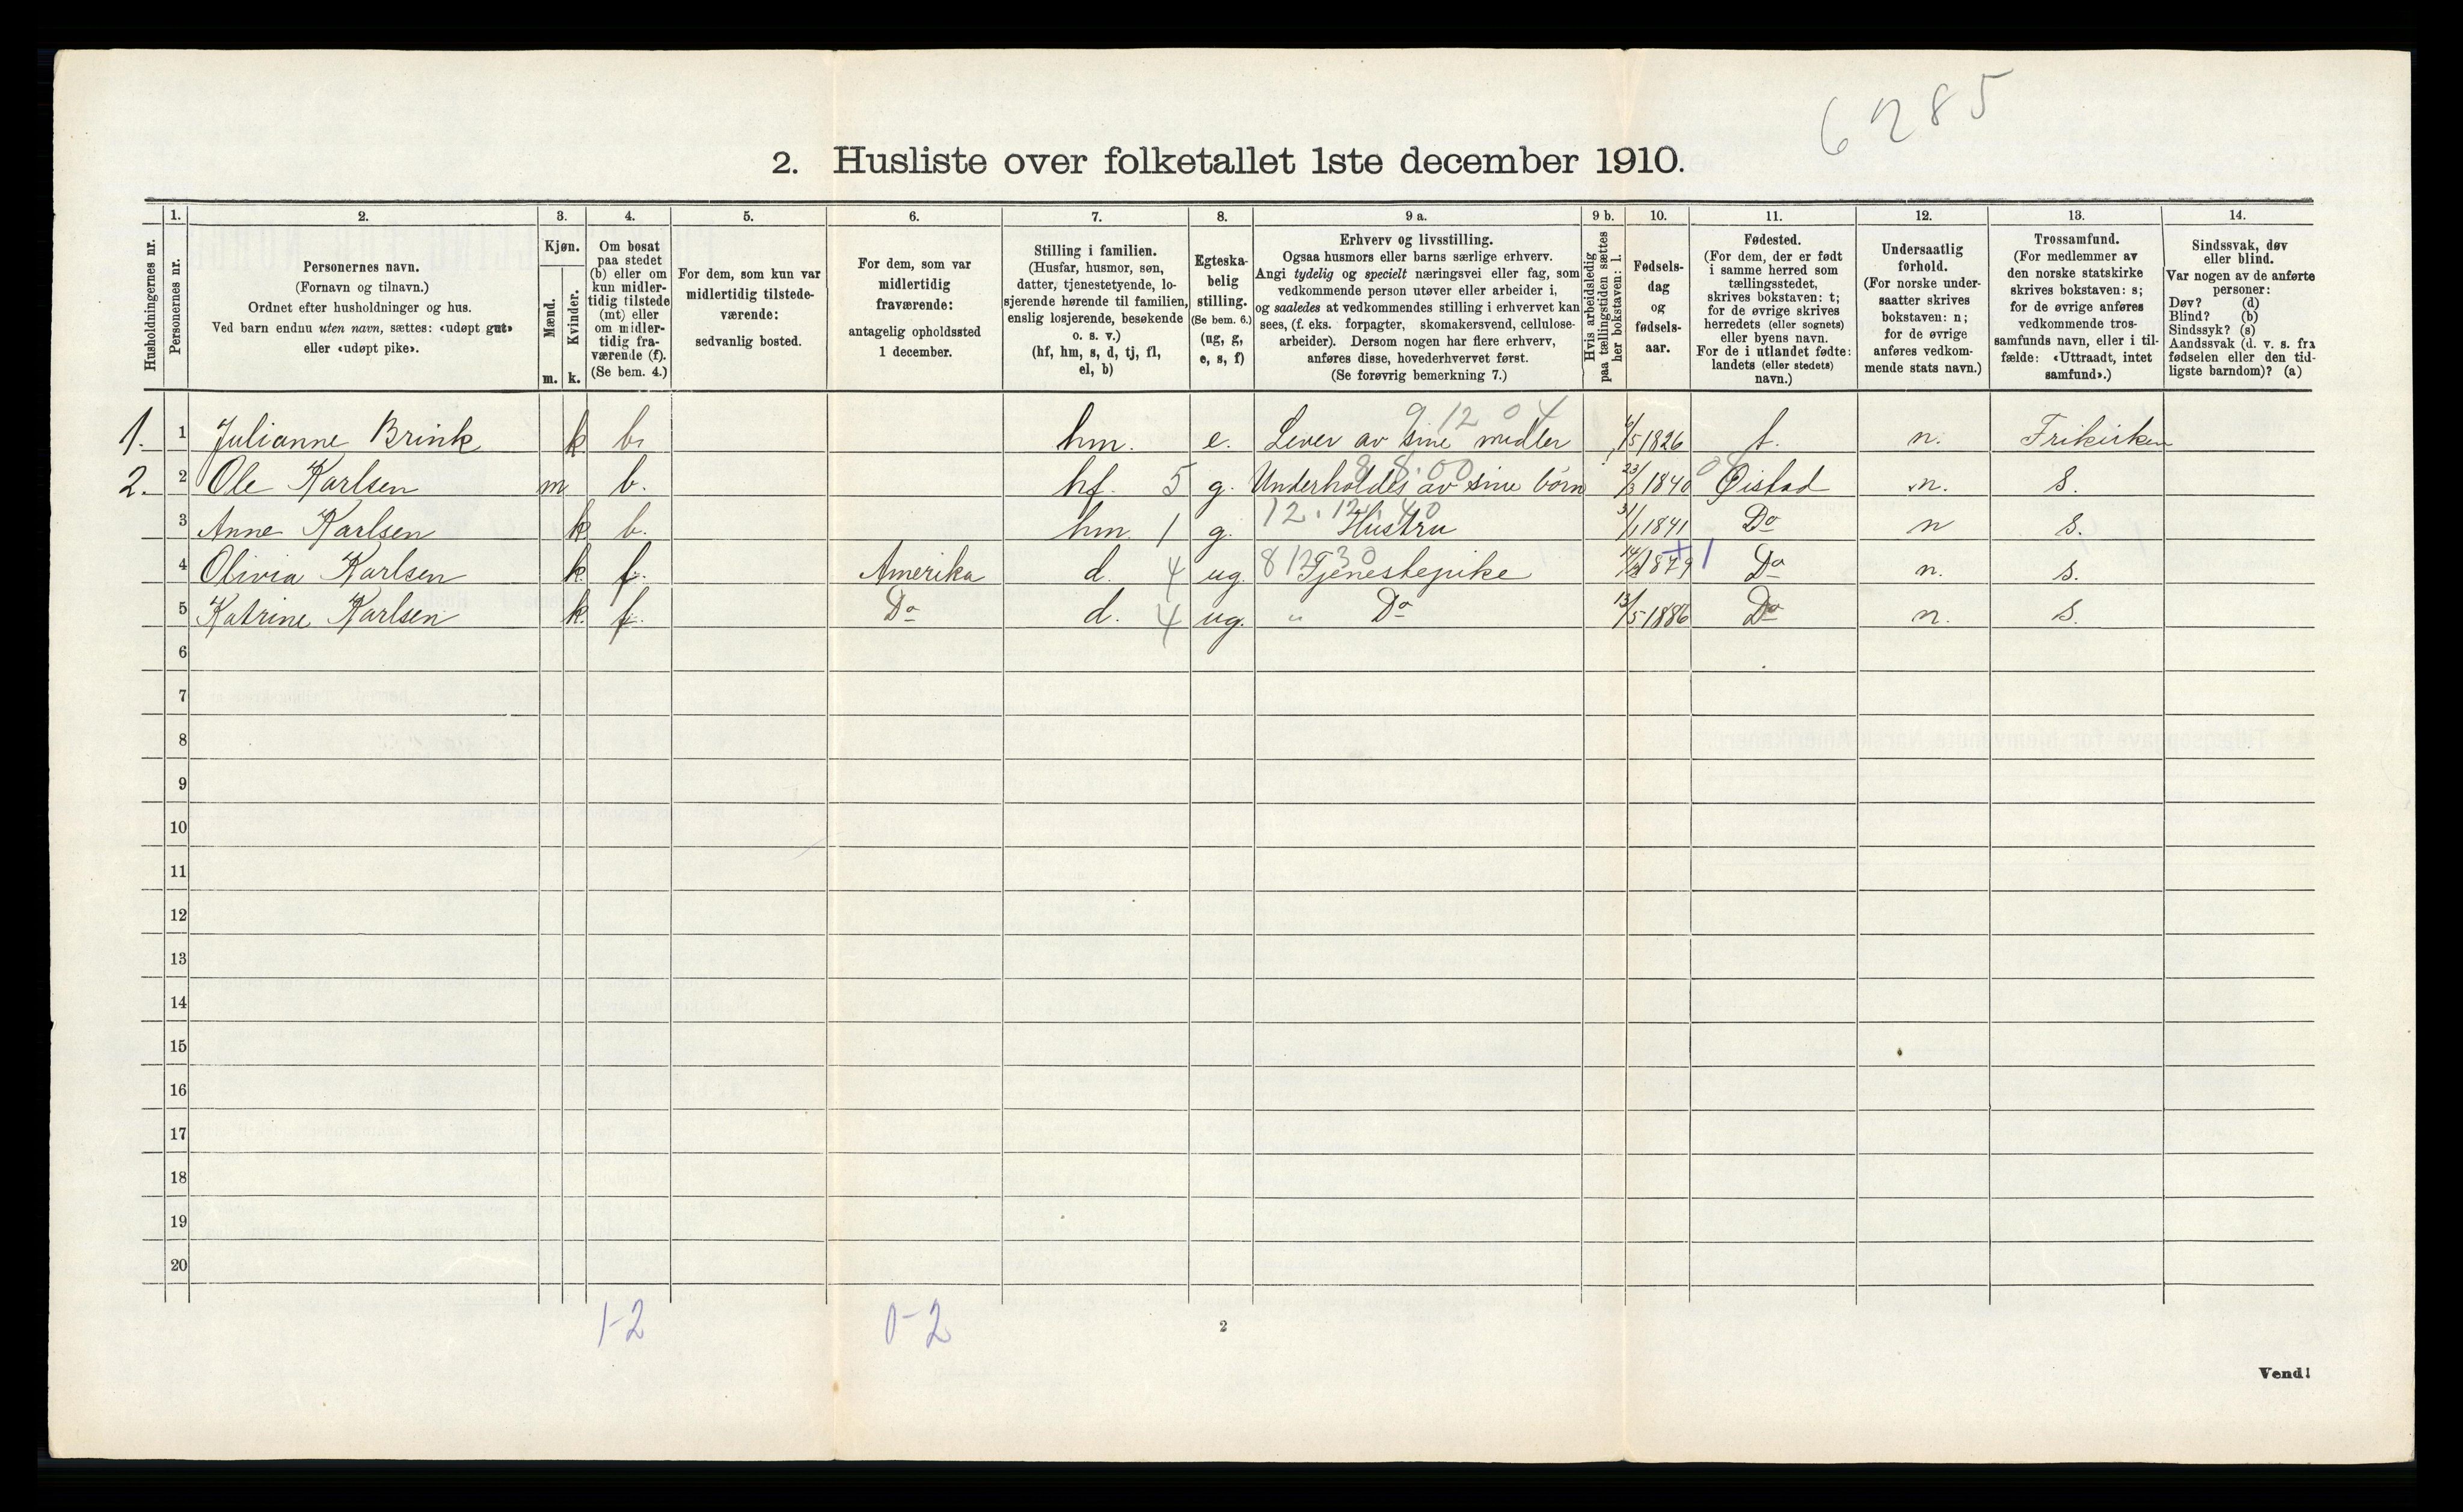 6285
2. Husliste over folketallet 1ste december 1910.
Husholdningernes nr.
1. Personernes nr.
2. Personernes navn. (Fornavn og tilnavn.) Ordnet efter husholdninger og hus. Ved barn endnu uten navn, sættes: «udøpt gut» eller «udøpt pike».
3. Kjøn. Mænd. m. Kvinder. k.
4. Om bosat paa stedet (b) eller om kun midlertidig tilstede (mt) eller om midlertidig fraværende (f). (Se bem. 4.)
5. For dem, som kun var midlertidig tilstedeværende: sedvanlig bosted.
6. For dem, som var midlertidig fraværende: antagelig opholdssted 1 december.
7. Stilling i familien. (Husfar, husmor, søn, datter, tjenestetyende, losjerende hørende til familien, enslig losjerende, besøkende o. s. v.) (hf, hm, s, d, tj, fl, el, b)
8. Egteskabelig stilling. (Se bem. 6.) (ug, g, e, s, f)
9 a. Erhverv og livsstilling. Ogsaa husmors eller barns særlige erhverv. Angi tydelig og specielt næringsvei eller fag, som vedkommende person utøver eller arbeider i, og saaledes at vedkommendes stilling i erhvervet kan sees, (f. eks. forpagter, skomakersvend, cellulosearbeider). Dersom nogen har flere erhverv, anføres disse, hovederhvervet først. (Se forøvrig bemerkning 7.)
9 b. Hvis arbeidsledig paa tællingstiden sættes her bokstaven: l.
10. Fødselsdag og fødselsaar.
11. Fødested. (For dem, der er født i samme herred som tællingsstedet, skrives bokstaven: t; for de øvrige skrives herredets (eller sognets) eller byens navn. For de i utlandet fødte: landets (eller stedets) navn.)
12. Undersaatlig forhold. (For norske undersaatter skrives bokstaven: n; for de øvrige anføres vedkommende stats navn.)
13. Trossamfund. (For medlemmer av den norske statskirke skrives bokstaven: s; for de øvrige anføres vedkommende trossamfunds navn, eller i tilfælde: «Uttraadt, intet samfund».)
14. Sindssvak, døv eller blind. Var nogen av de anførte personer: Døv? (d) Blind? (b) Sindssyk? (s) Aandssvak (d. v. s. fra fødselen eller den tidligste barndom)? (a)
9 12 04
1. 1 Julianne Brink k b. hm. e. Lever av sine midler 6/5 1826 t. n. Frikirken
8 8.00
2. 2 Ole Karlsen m b. hf. 5 g. Underholdes av sine børn 23/3 1840 Øistad n. s.
12.12.40
3 Anne Karlsen k b. hm. 1 g. Hustru 31/1 1841 Do n s.
8 12 30
4 Olivia Karlsen k f. Amerika d. 4 ug. Tjenestepike 1879 Do n. s.
5 Katrine Karlsen k. f. Do d. 4 ug. " Do 13/5 1886 Do n. s.
6
7
8
9
10
11
12
13
14
15
16
17
18
19
20
1-2 0-2
2
Vend!